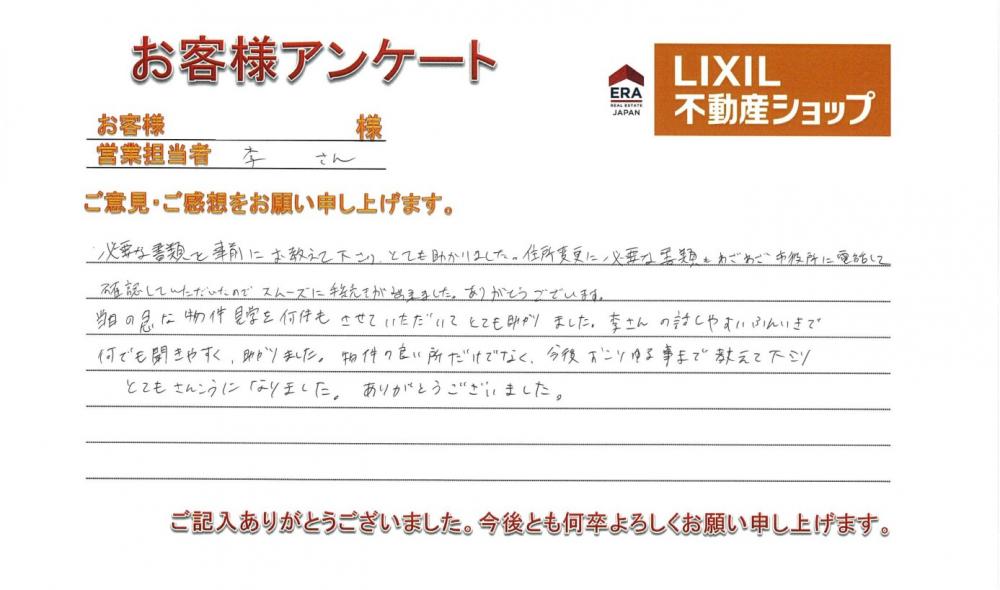 お客様アンケート
ERA
REAL ESTATE
JAPAN
LIXIL
不動産ショップ
お客様 様
営業担当者 李 さん
ご意見・ご感想をお願い申し上げます。
必要な書類を事前にお教えて下さり、とても助かりました。住所変更に必要な書類もわざわざ市役所に電話して
確認していただいたのでスムーズに手続きが出来ました。ありがとうございます。
当日の急な物件見学を何件もさせていただいてとても助かりました。李さんの話しやすいふんいきで
何でも聞きやすく、助かりました。物件の良い所だけでなく、今後おこりゆる事まで教えて下さり
とてもさんこうになりました。ありがとうございました。
ご記入ありがとうございました。今後とも何卒よろしくお願い申し上げます。